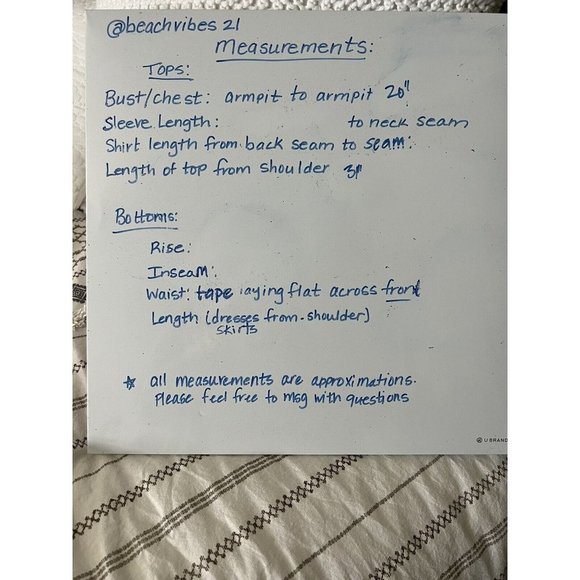 @beachvibes 21
Measurements:
Tops:
Bust/chest: armpit to armpit 20"
Sleeve Length: to neck seam
Shirt length from back seam to seam:
Length of top from shoulder
Bottoms:
Rise:
Inseam:
Waist: tape laying flat across front
Length (dresses from-shoulder)
skirts
☆ all measurements are approximations.
Please feel free to msg with questions
U BRAND